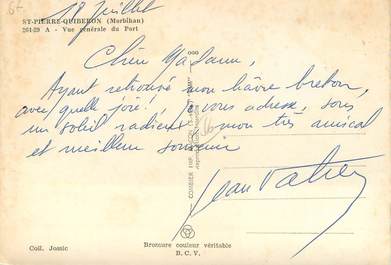 18 juillet
ST-PIERRE-QUIBERON (Morbihan)
264-29 A - Vue générale du Port
Chère Madame,
Ayant retrouvé mon hâvre breton,
avec quelle joie!, je vous adresse, sous
un soleil radieux mon très amical
et meilleur souvenir
Jean
COMBIER IMP. MACON
Coll. Jossic
Bromure couleur véritable
B. C. V.